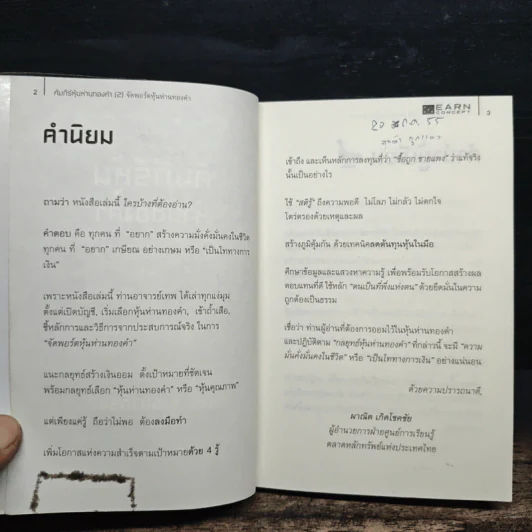 2 คัมภีร์หุ้นห่านทองคำ (2) จัดพอร์ตหุ้นห่านทองคำ
คำนิยม
ถามว่า หนังสือเล่มนี้ ใครบ้างที่ต้องอ่าน?
คำตอบ คือ ทุกคน ที่ “อยาก” สร้างความมั่งคั่งมั่นคงในชีวิต
ทุกคน ที่ “อยาก” เกษียณ อย่างเกษม หรือ “เป็นไททางการ
เงิน”
เพราะหนังสือเล่มนี้ ท่านอาจารย์เทพ ได้เล่าทุกแง่มุม
ตั้งแต่เปิดบัญชี, เริ่มเลือกหุ้นห่านทองคำ, เช้าถ้ำเสือ,
ชี้หลักการและวิธีการจากประสบการณ์จริง ในการ
“จัดพอร์ตหุ้นห่านทองคำ”
แนะกลยุทธ์สร้างเงินออม ตั้งเป้าหมายที่ชัดเจน
พร้อมกลยุทธ์เลือก “หุ้นห่านทองคำ” หรือ “หุ้นคุณภาพ”
แต่เพียงแค่รู้ ถือว่าไม่พอ ต้องลงมือทำ
เพิ่มโอกาสแห่งความสำเร็จตามเป้าหมายด้วย 4 รู้
EARN
CONCEPT
3
เข้าถึง และเห็นหลักการลงทุนที่ว่า “ซื้อถูก ขายแพง” ว่าแท้จริง
นั้นเป็นอย่างไร
ใช้ “สติรู้” ถึงความพอดี ไม่โลภ ไม่กลัว ไม่ตกใจ
ไตร่ตรองด้วยเหตุและผล
สร้างภูมิคุ้มกัน ด้วยเทคนิคลดต้นทุนหุ้นในมือ
ศึกษาข้อมูลและแสวงหาความรู้ เพื่อพร้อมรับโอกาสสร้างผล
ตอบแทนที่ดี ใช้หลัก “ตนเป็นที่พึ่งแห่งตน” ด้วยยึดมั่นในความ
ถูกต้องเป็นธรรม
เชื่อว่า ท่านผู้อ่านที่ต้องการออมไว้ในหุ้นห่านทองคำ
และปฏิบัติตาม “กลยุทธ์หุ้นห่านทองคำ” ที่กล่าวนี้ จะมี “ความ
มั่นคั่งมั่นคงในชีวิต” หรือ “เป็นไททางการเงิน” อย่างแน่นอน
ด้วยความปรารถนาดี,
ผาณิต เกิดโชคชัย
ผู้อำนวยการฝ่ายศูนย์การเรียนรู้
ตลาดหลักทรัพย์แห่งประเทศไทย